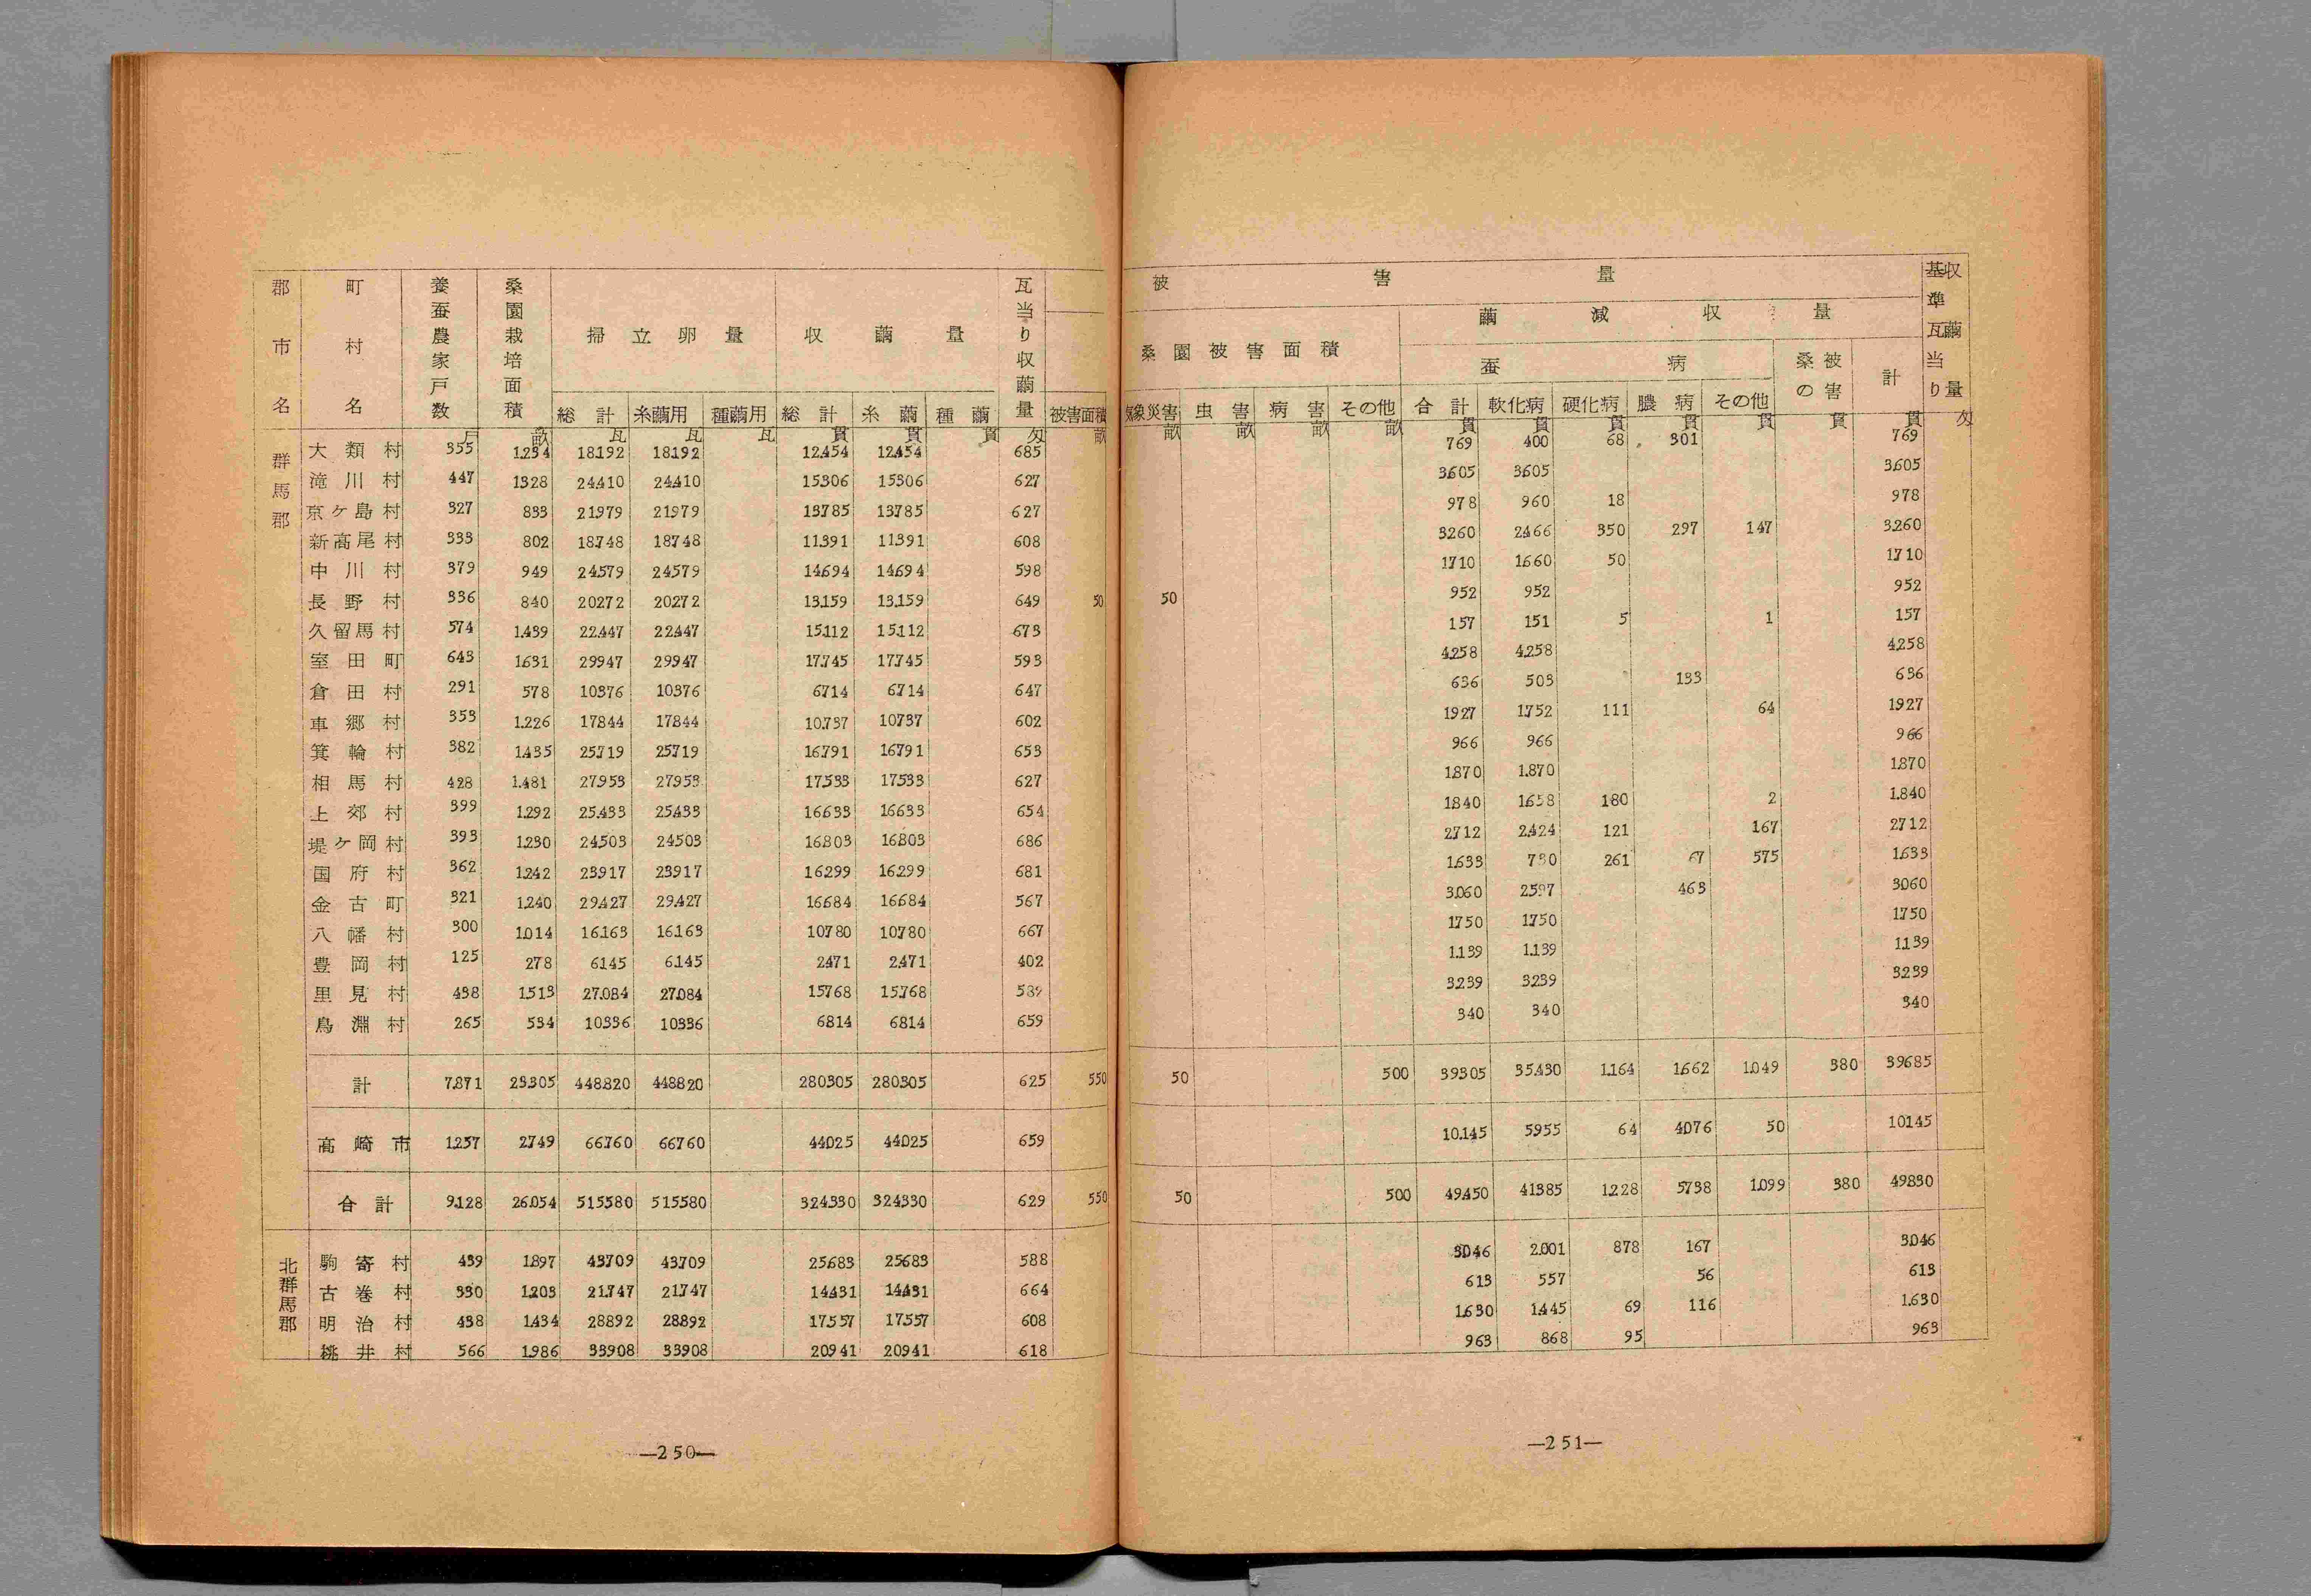 郡市名 町村名 養蚕農家戸数 桑園栽培面積 掃立卵量 収繭量 瓦当り収繭量
総計 糸繭用 種繭用 総計 糸繭 種繭 被害面積
戸 畝 瓦 瓦 瓦 貫 貫 貫 匁 畝
群馬郡
大類村 355 1,234 18,192 18,192 12,454 12,454 685
滝川村 447 1,328 24,410 24,410 15,306 15,306 627
京ヶ島村 327 833 21,979 21,979 13,785 13,785 627
新高尾村 333 802 18,748 18,748 11,391 11,391 608
中川村 379 949 24,579 24,579 14,694 14,694 598
長野村 336 840 20,272 20,272 13,159 13,159 649 50
久留馬村 574 1,439 22,447 22,447 15,112 15,112 673
室田町 643 1,631 29,947 29,947 17,745 17,745 593
倉田村 291 578 10,376 10,376 6,714 6,714 647
車郷村 353 1,226 17,844 17,844 10,737 10,737 602
箕輪村 382 1,435 25,719 25,719 16,791 16,791 653
相馬村 428 1,481 27,953 27,953 17,533 17,533 627
上郊村 399 1,292 25,433 25,433 16,633 16,633 654
堤ヶ岡村 393 1,230 24,503 24,503 16,803 16,803 686
国府村 362 1,242 23,917 23,917 16,299 16,299 681
金古町 321 1,240 29,427 29,427 16,684 16,684 567
八幡村 300 1,014 16,163 16,163 10,780 10,780 667
豊岡村 125 278 6,145 6,145 2,471 2,471 402
里見村 438 1,513 27,084 27,084 15,768 15,768
烏淵村 265 534 10,336 10,336 6,814 6,814 659
計 7,871 23,305 448,820 448,820 280,305 280,305 625 550
高崎市 1,257 2,749 66,760 66,760 44,025 44,025 659
合計 9,128 26,054 515,580 515,580 324,330 324,330 629 550
北群馬郡
駒寄村 439 1,897 43,709 43,709 25,683 25,683 588
古巻村 330 1,203 21,747 21,747 14,431 14,431 664
明治村 438 1,434 28,892 28,892 17,557 17,557 608
桃井村 566 1,986 33,908 33,908 20,941 20,941 618
—250—
被害量 基準瓦当り収繭量
桑園被害面積 繭減収量
蚕病 桑の被害 計
気象災害 虫害 病害 その他 合計 軟化病 硬化病 膿病 その他
畝 畝 畝 畝 貫 貫 貫 貫 貫 貫 貫 匁
769 400 68 301 769
3,605 3,605 3,605
978 960 18 978
3,260 2,466 350 297 147 3,260
1,710 1,660 50 1,710
50 952 952 952
157 151 5 1 157
4,258 4,258 4,258
636 503 133 636
1,927 1,752 111 64 1,927
966 966 966
1,870 1,870 1,870
1,840 1,658 180 2 1,840
2,712 2,424 121 167 2,712
1,633 730 261 67 575 1,633
3,060 2,597 463 3,060
1,750 1,750 1,750
1,139 1,139 1,139
3,239 3,239 3,239
340 340 340
50 500 39,305 35,430 1,164 1,662 1,049 380 39,685
10,145 5,955 64 4,076 50 10,145
50 500 49,450 41,385 1,228 5,738 1,099 380 49,830
3,046 2,001 878 167 3,046
613 557 56 613
1,630 1,445 69 116 1,630
963 868 95 963
—251—